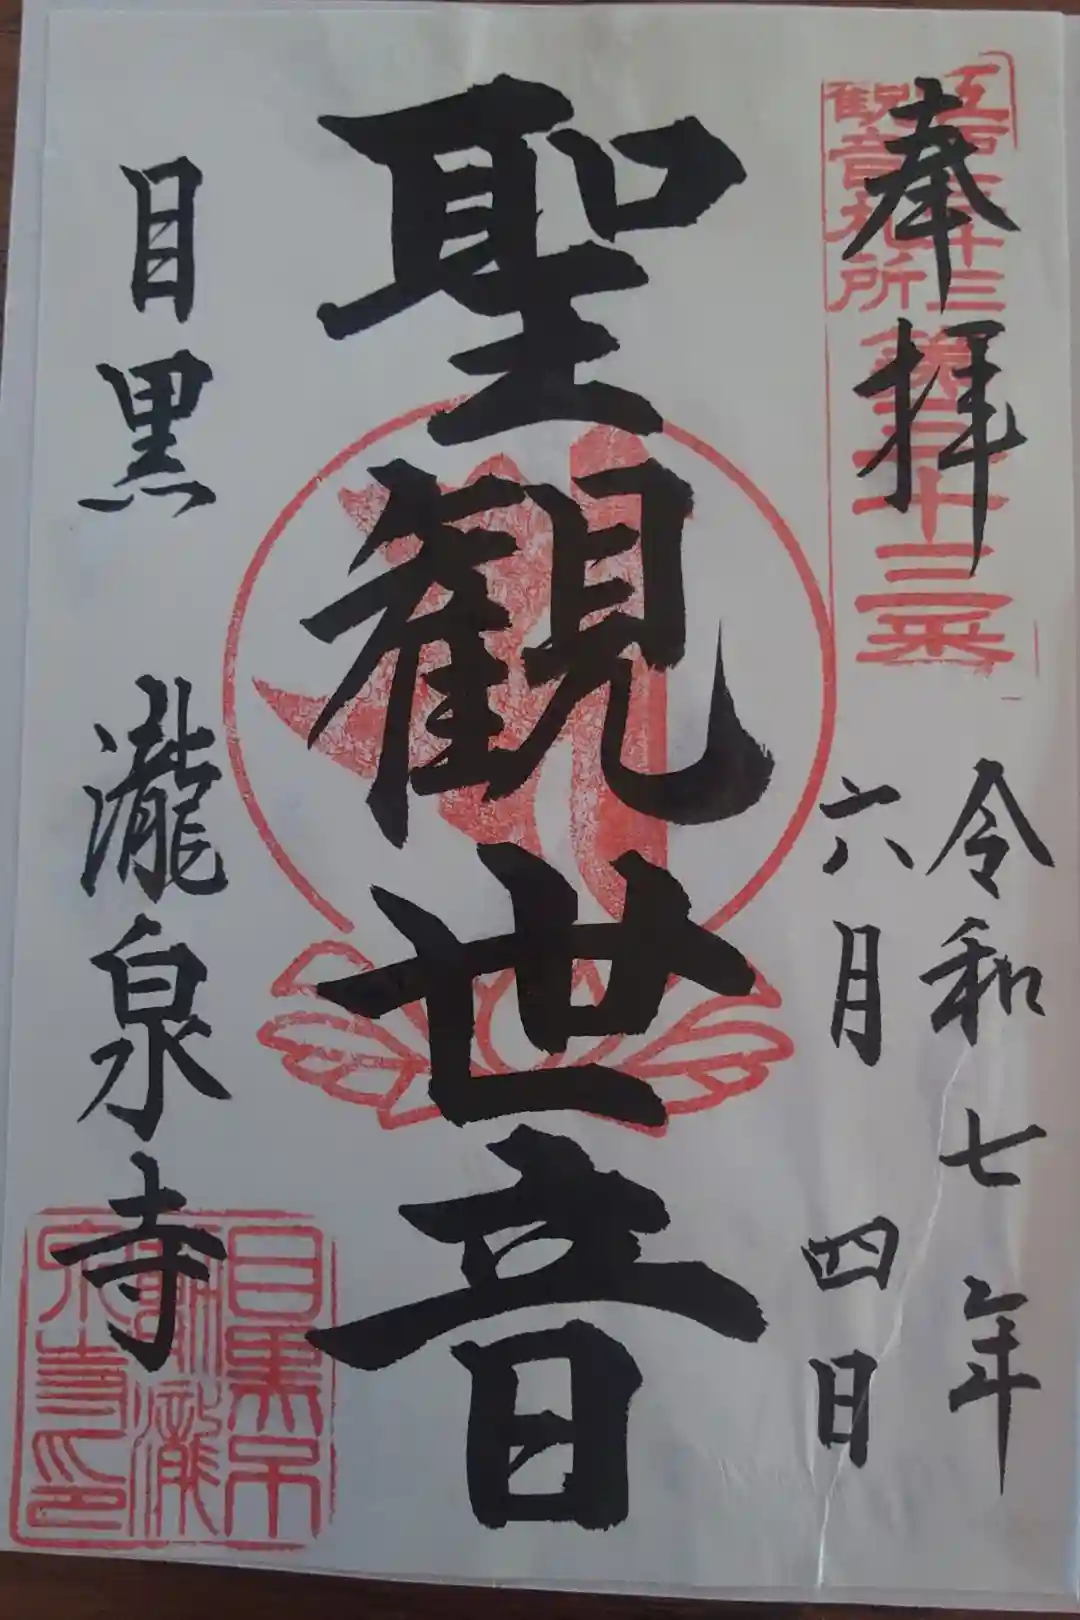 奉拝
江戸三十三
観音札所
第三十三番
令和七年
六月四日
聖観世音
目黒 瀧泉寺
目黒不
動瀧
泉寺印